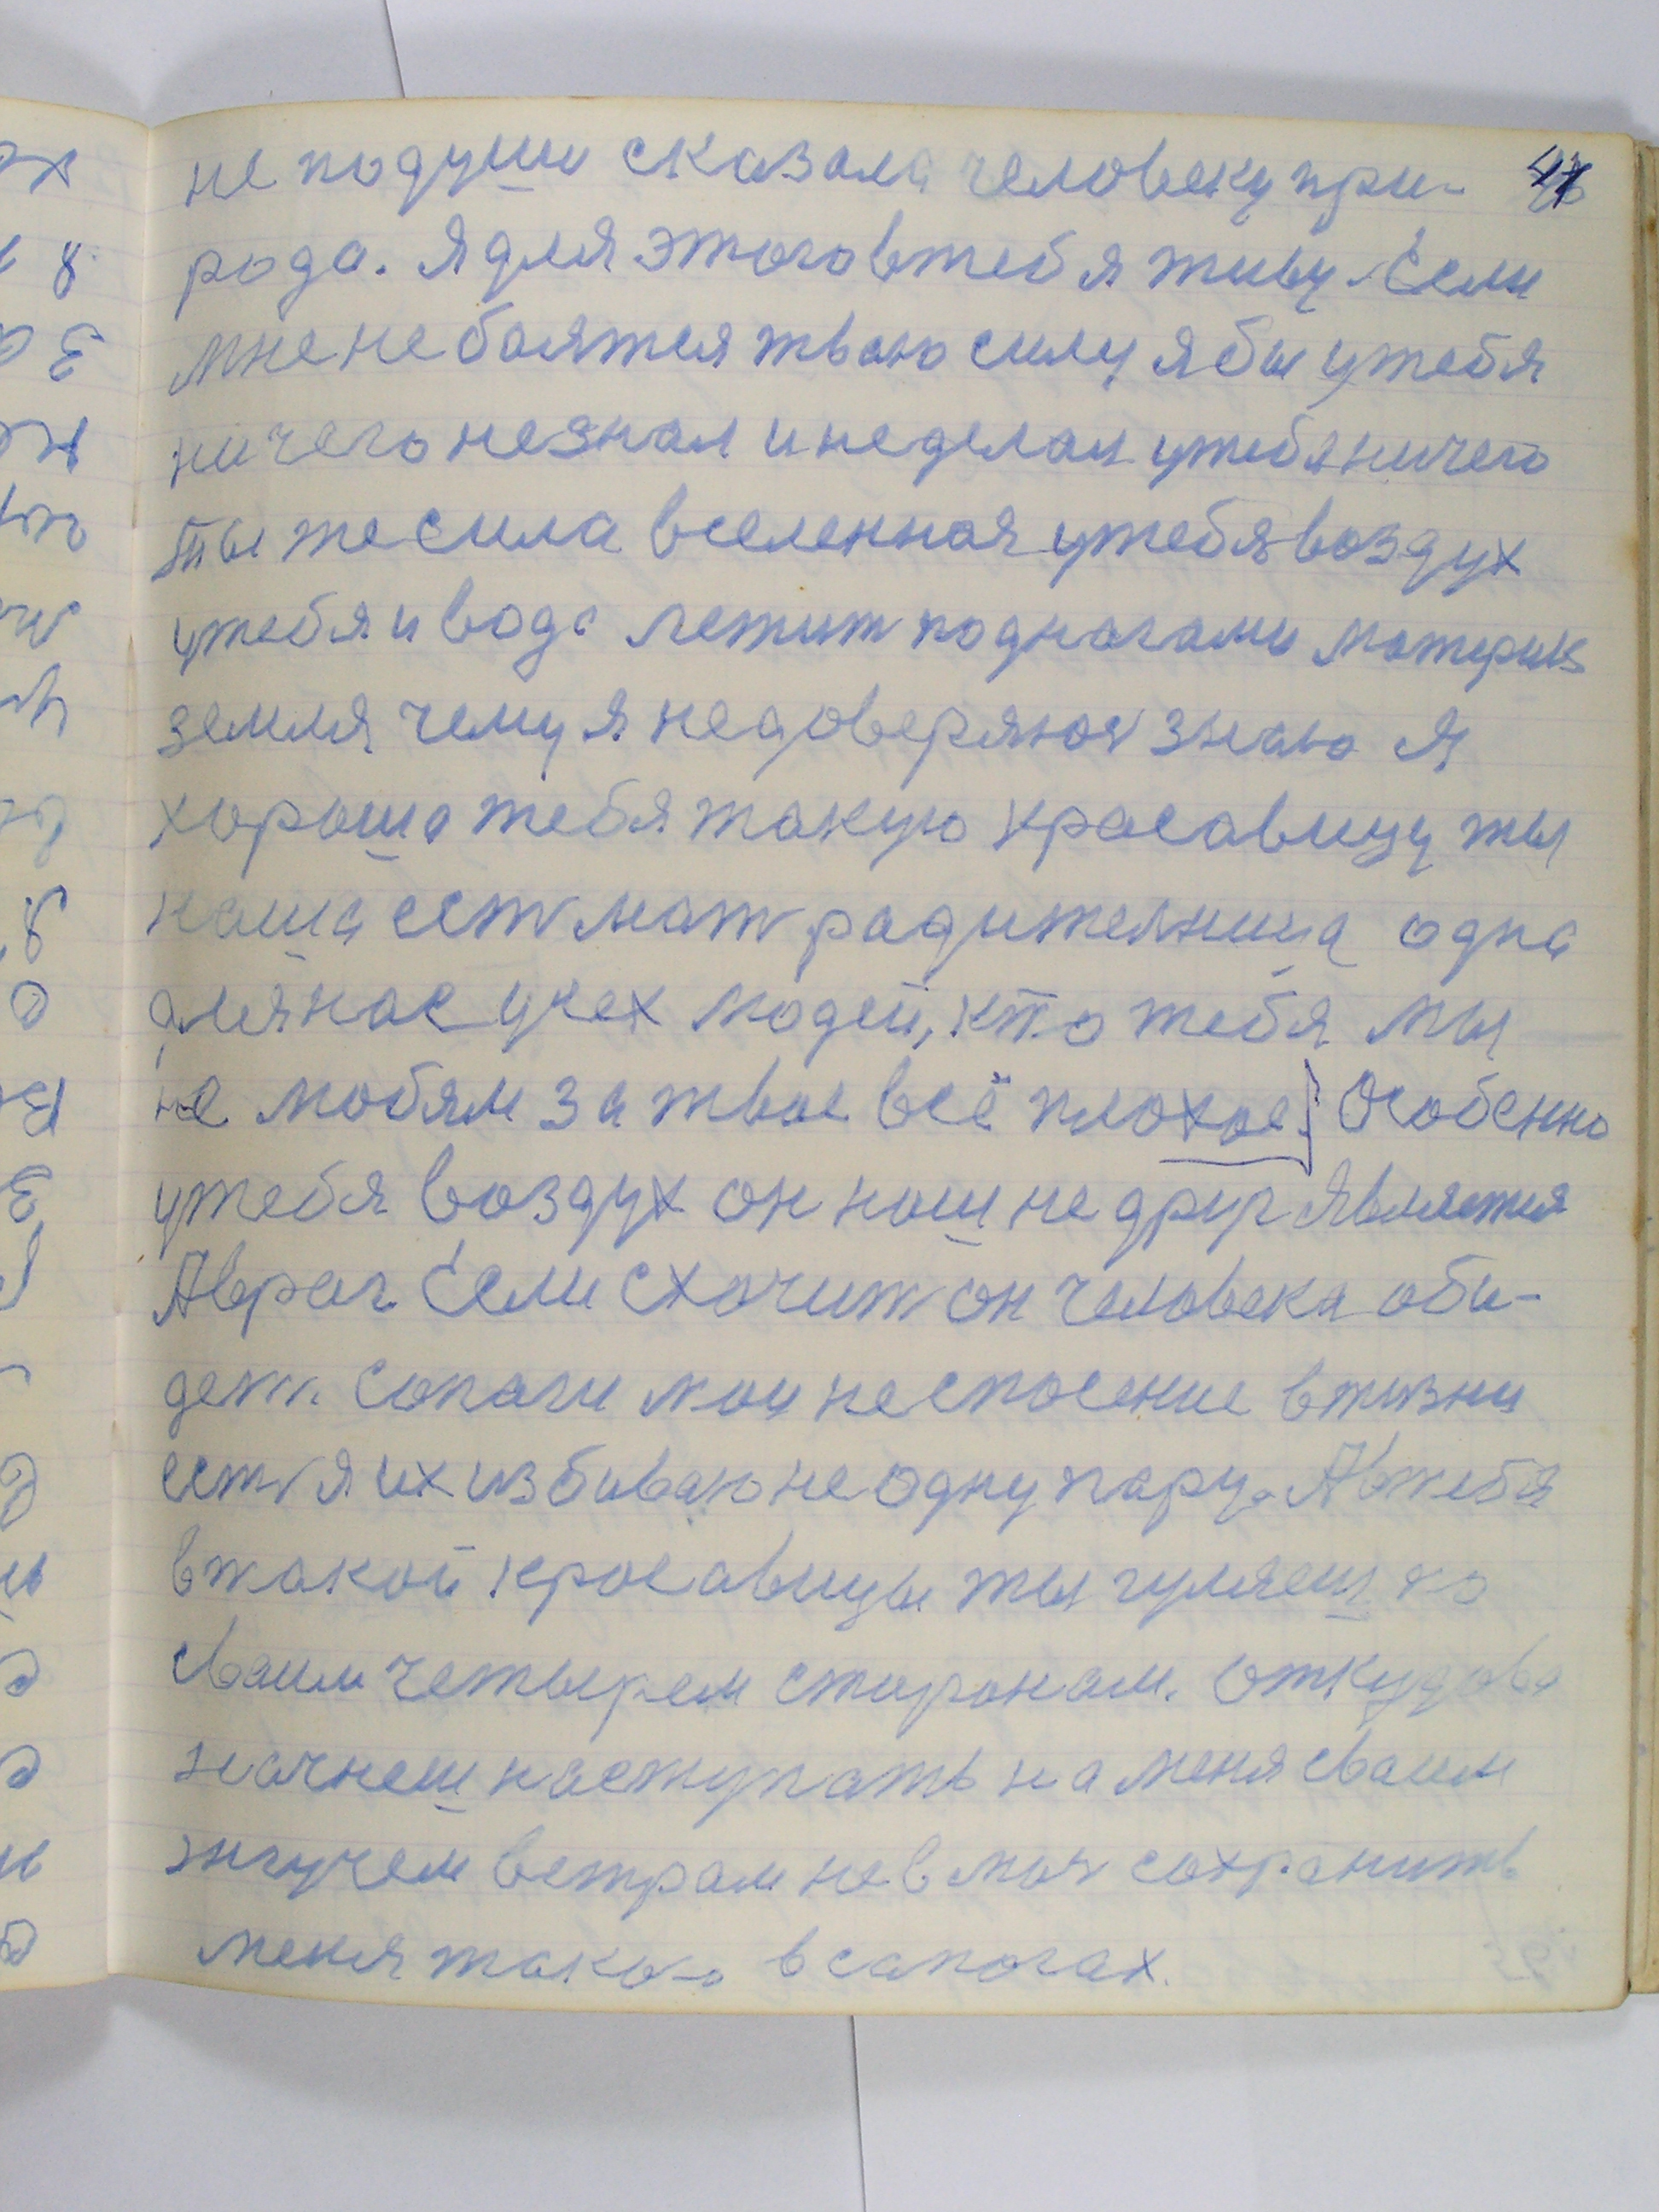 не подуши сказала человеку при-
рода. Я для этого в тебя живу. Если
мне не боятся твою силу я бы у тебя
ничего не знал и не делал у тебя ничего
ты же сила вселенная у тебя воздух
у тебя и вода лежит под ногами материк
земля чему я не доверяюся знаю я
хорошо тебя такую красавицу ты
наша есть мать радителница одна
для нас усех людей, кто тебя мы
не любям за твое всё плохое. Особенно
у тебя воздух он наш не друг является
А враг. Если схочить он человека оби-
деть. Сопаги мои не спосение в жизни
есть я их избиваю не одну пару. А в тебя
в такой красавицы ты гуляеш по
сваим четырем сторонам. Откудова
начнеш наступать на меня сваим
жгучем ветрам не в мочь сохранить
меня такого в сапогах.